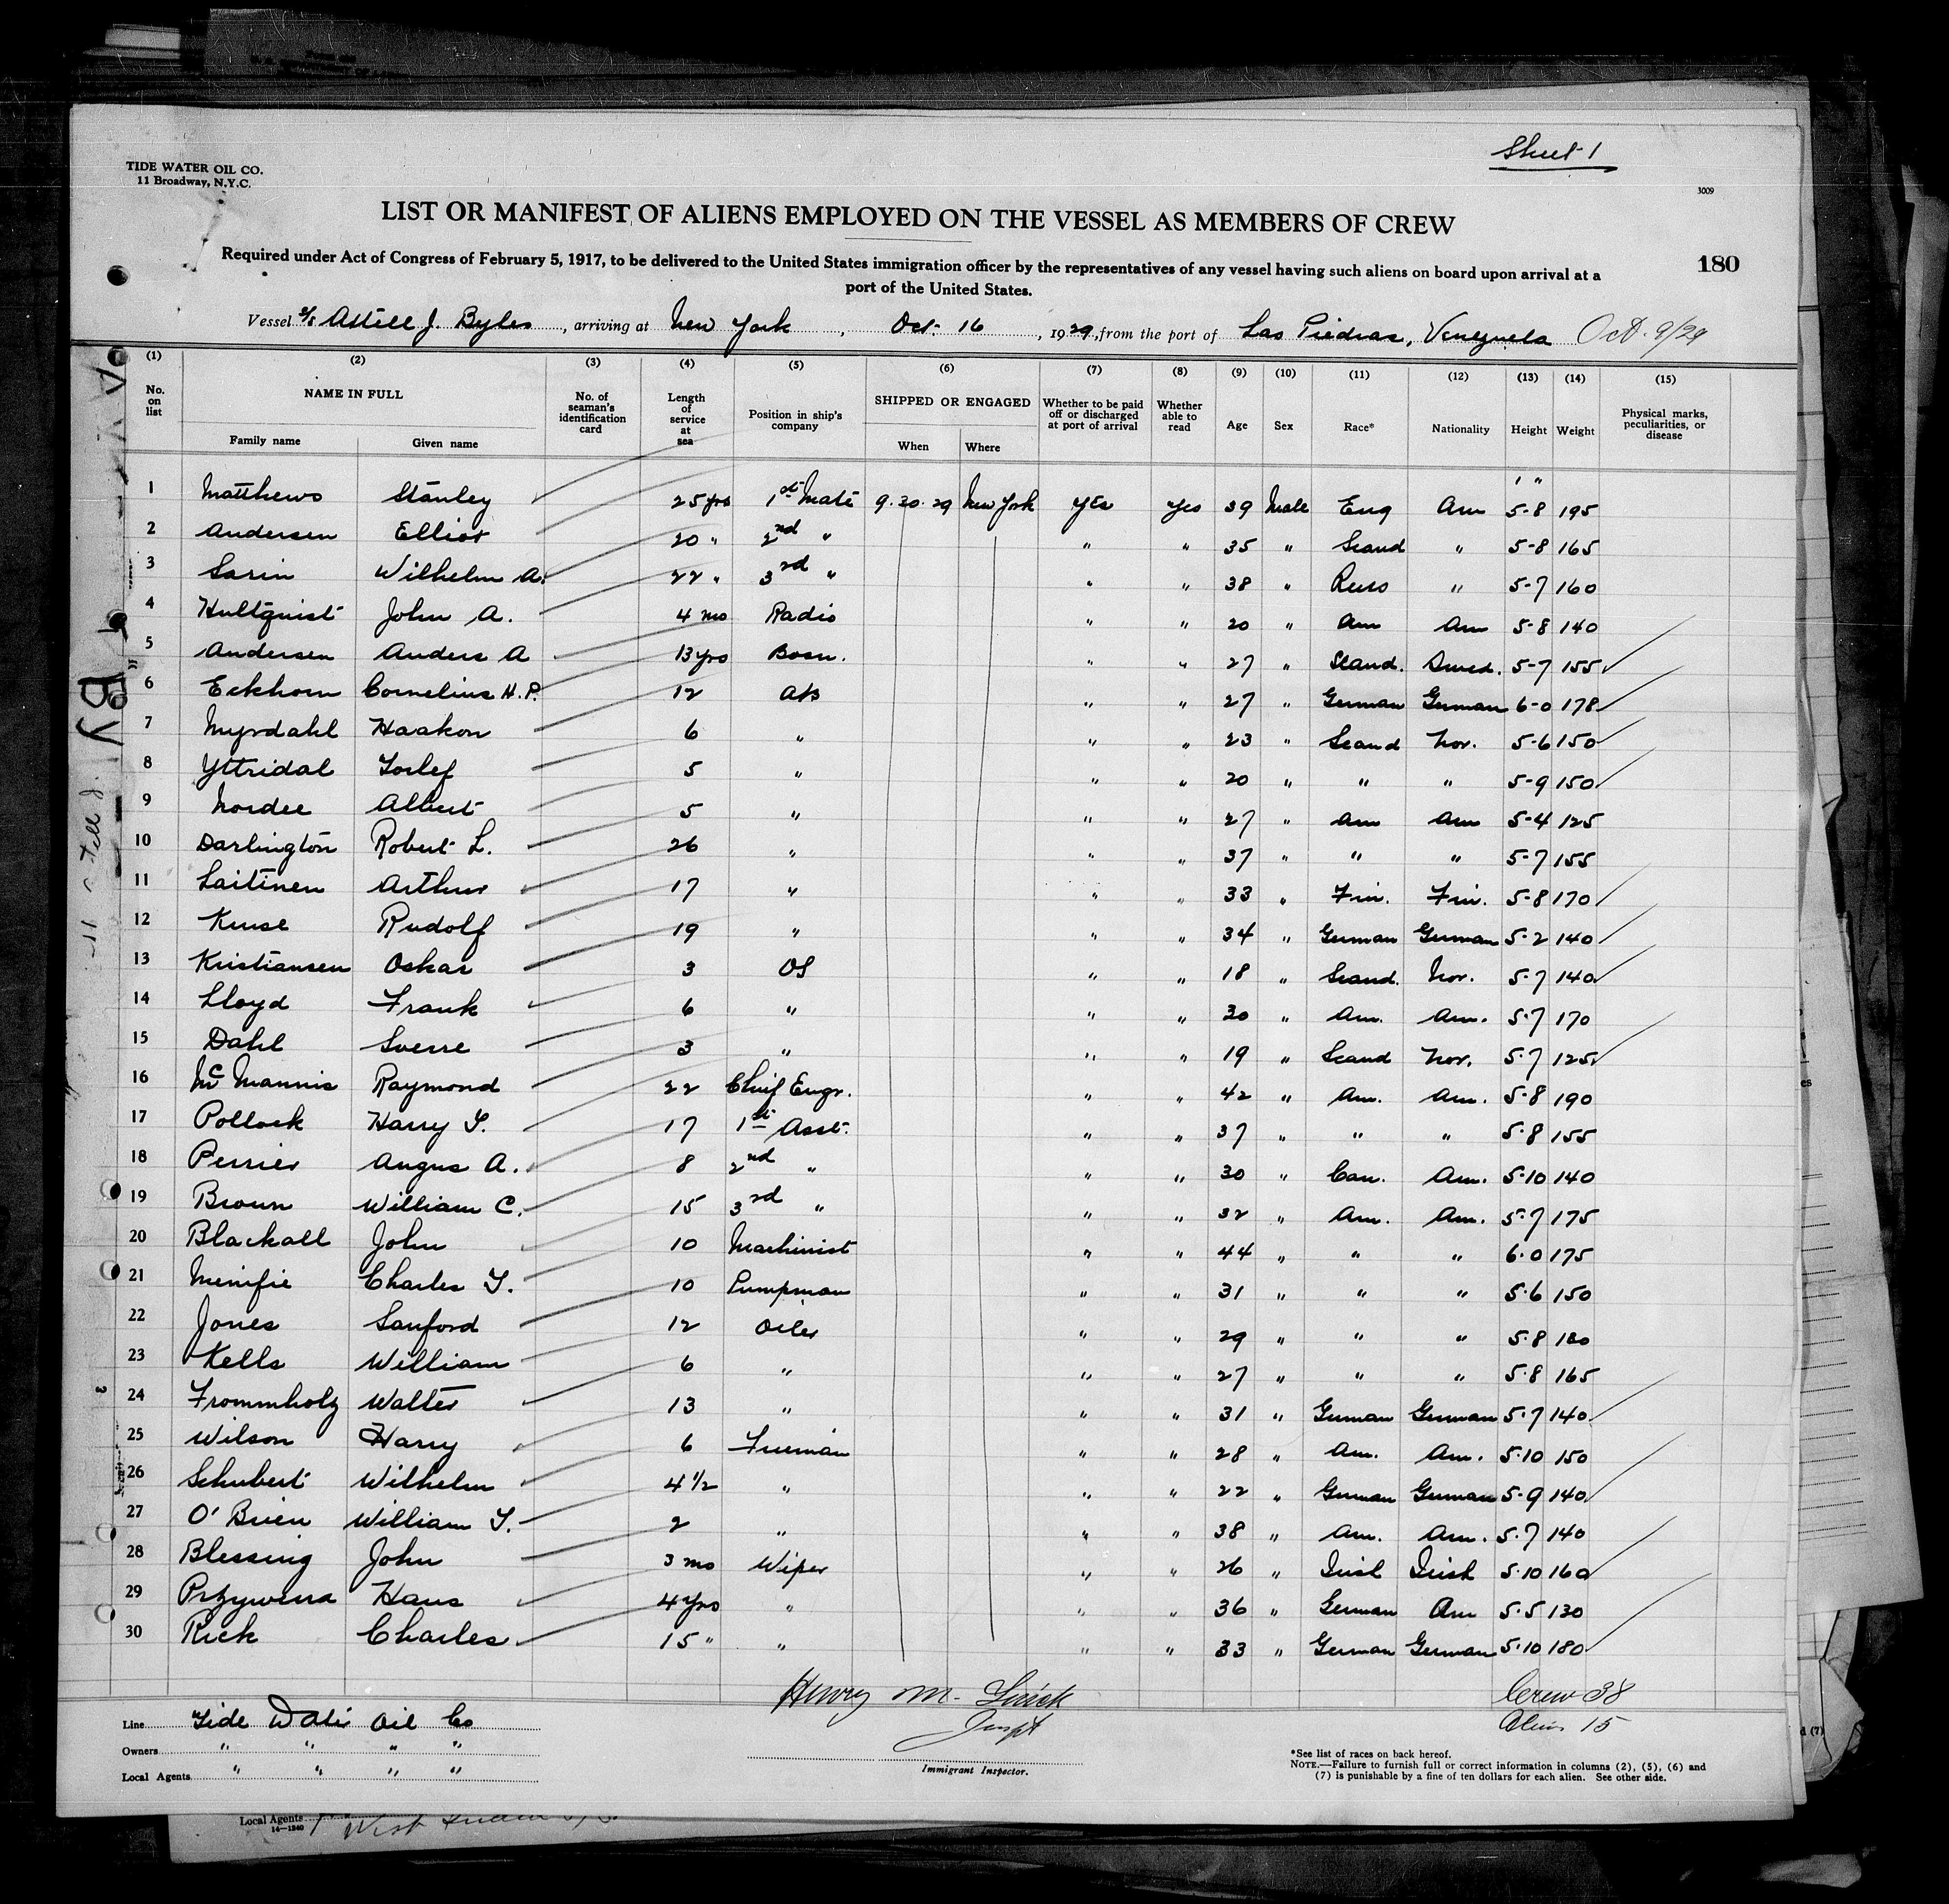 Sheet 1
TIDE WATER OIL CO.
11 Broadway, N.Y.C.
3009
LIST OR MANIFEST OF ALIENS EMPLOYED ON THE VESSEL AS MEMBERS OF CREW
Required under Act of Congress of February 5, 1917, to be delivered to the United States immigration officer by the representatives of any vessel having such aliens on board upon arrival at a
port of the United States.
180
Vessel S/S Axtell J. Byles, arriving at New York, Oct. 16, 1929, from the port of Las Piedras, Venezuela Oct. 9/29
(1) (2) (3) (4) (5) (6) (7) (8) (9) (10) (11) (12) (13) (14) (15)
No. on list NAME IN FULL Family name Given name No. of seaman's identification card Length of service at sea Position in ship's company SHIPPED OR ENGAGED When Where Whether to be paid off or discharged at port of arrival Whether able to read Age Sex Race* Nationality Height Weight Physical marks, peculiarities, or disease
1 Matthews Stanley 25 yrs 1st Mate 9.30.29 New York Yes Yes 39 Male Eng Am 5-8 195
2 Andersen Elliot 20 " 2nd " " " 35 " Scand " 5-8 165
3 Sarin Wilhelm A. 22 " 3rd " " " 38 " Russ " 5-7 160
4 Hultquist John A. 4 mo Radio " " 20 " Am Am 5-8 140
5 Andersen Anders A 13 yrs Bosn. " " 27 " Scand. Swed. 5-7 155
6 Eckhorn Cornelius H.P. 12 AB " " 27 " German German 6-0 178
7 Myrdahl Haakon 6 " " " 23 " Scand Nor. 5-6 150
8 Yttridal Torlef 5 " " " 20 " " " 5-9 150
9 Nordee Albert 5 " " " 27 " Am Am 5-4 125
10 Darlington Robert L. 26 " " " 37 " " " 5-7 155
11 Laitinen Arthur 17 " " " 33 " Fin. Fin. 5-8 170
12 Kruse Rudolf 19 " " " 34 " German German 5-2 140
13 Kristiansen Oskar 3 OS " " 18 " Scand. Nor. 5-7 140
14 Lloyd Frank 6 " " " 30 " Am. Am. 5-7 170
15 Dahl Sverre 3 " " " 19 " Scand Nor. 5-7 125
16 McMannis Raymond 22 Chief Engr. " " 42 " Am. Am. 5-8 190
17 Pollock Harry T. 17 1st Asst. " " 37 " " " 5-8 155
18 Perrier Angus A. 8 2nd " " " 30 " Can. Am. 5-10 140
19 Brown William C. 15 3rd " " " 32 " Am. Am. 5-7 175
20 Blackall John 10 Machinist " " 44 " " " 6-0 175
21 Menifie Charles T. 10 Pumpman " " 31 " " " 5-6 150
22 Jones Sanford 12 Oiler " " 29 " " " 5-8 180
23 Kells William 6 " " " 27 " " " 5-8 165
24 Frommholz Walter 13 " " " 31 " German German 5-7 140
25 Wilson Harry 6 Fireman " " 28 " Am. Am. 5-10 150
26 Schubert Wilhelm 4 1/2 " " " 22 " German German 5-9 140
27 O'Brien William T. 2 " " " 38 " Am. Am. 5-7 140
28 Blessing John 3 mo Wiper " " 26 " Irish Irish 5-10 160
29 Przywena Hans 4 yrs " " " 36 " German Am 5-5 130
30 Rick Charles 15 " " " " 33 " German German 5-10 180
Henry M. Inspt
Crew 38
Alien 15
Line Tide Water Oil Co
Owners " " " "
Local Agents " " " "
Immigrant Inspector.
*See list of races on back hereof.
NOTE.—Failure to furnish full or correct information in columns (2), (5), (6) and
(7) is punishable by a fine of ten dollars for each alien. See other side.
Local Agents
14—1240